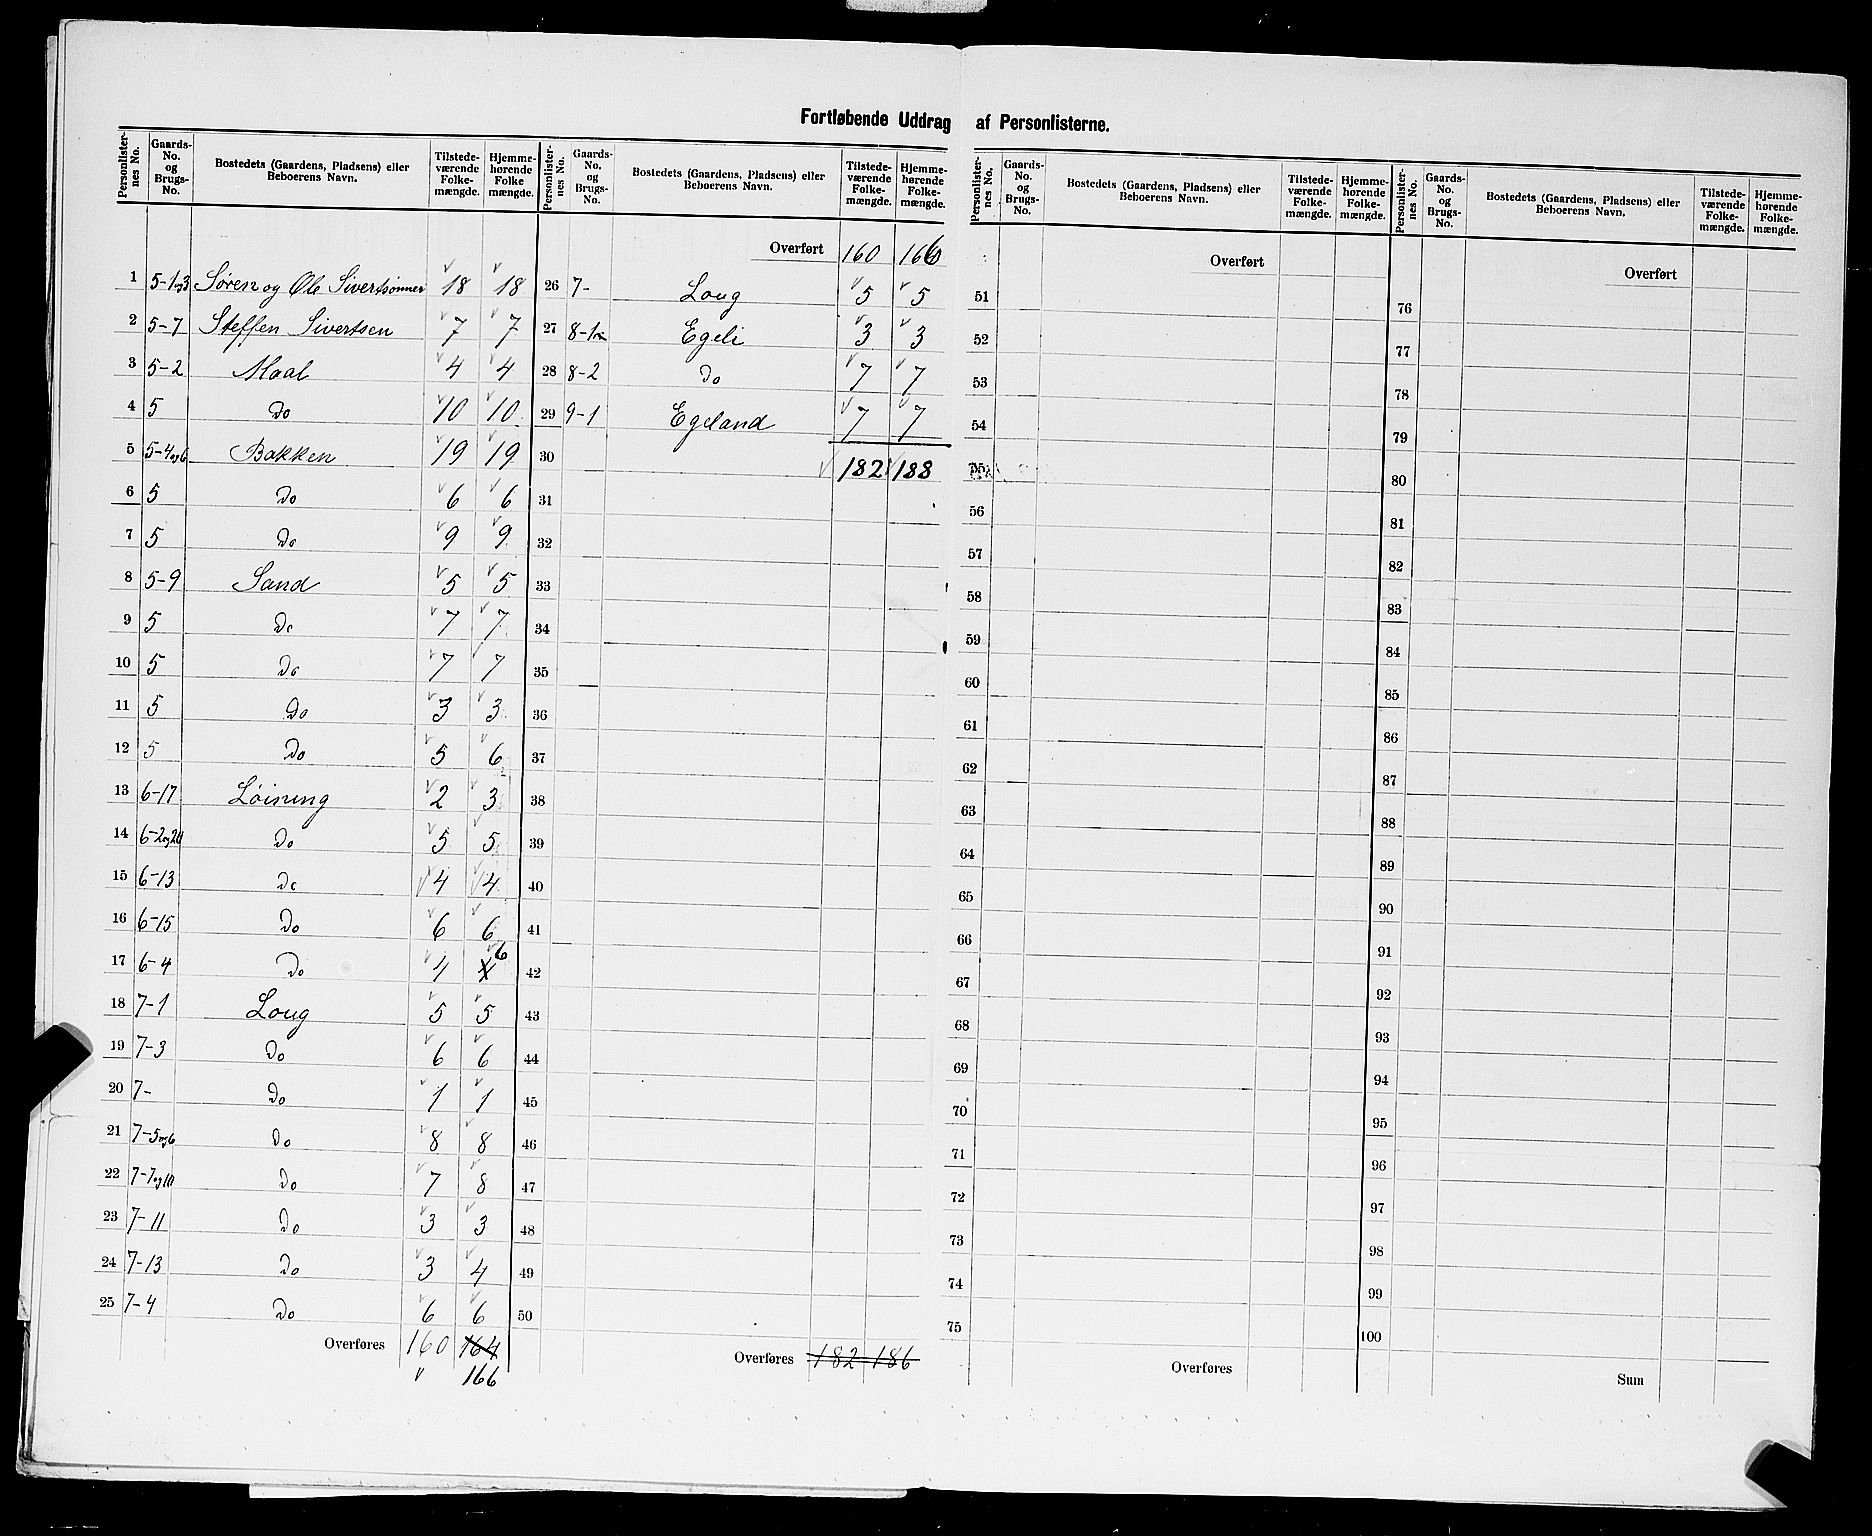 Fortløbende Uddrag af Personlisterne.
Personlister-nes No. | Gaards-No. og Brugs-No. | Bostedets (Gaardens, Pladsens) eller Beboerens Navn. | Tilstede-værende Folke-mængde. | Hjemme-hørende Folke mængde.
1 5-1og3 Søren og Ole Sivertsønner 18 18
2 5-7 Steffen Sivertsen 7 7
3 5-2 Moal 4 4
4 5 Do 10 10
5 5-4og6 Bakken 19 19
6 5 Do 6 6
7 5 Do 9 9
8 5-9 Sand 5 5
9 5 Do 7 7
10 5 Do 7 7
11 5 Do 3 3
12 5 Do 5 6
13 6-17 Løining 2 3
14 6-2og20 Do 5 5
15 6-13 Do 4 4
16 6-15 Do 6 6
17 6-4 Do 4 4 6
18 7-1 Loug 5 5
19 7-3 Do 6 6
20 7- Do 1 1
21 7-5og6 Do 8 8
22 7-7og10 Do 7 8
23 7-11 Do 3 3
24 7-13 Do 3 4
25 7-4 Do 6 6
Overføres 160 164
166
Personlister-nes No. | Gaards-No. og Brugs-No. | Bostedets (Gaardens, Pladsens) eller Beboerens Navn. | Tilstede-værende Folke-mængde. | Hjemme-hørende Folke-mængde.
Overført 160 166
26 7- Loug 5 5
27 8-1 Egeli 3 3
28 8-2 Do 7 7
29 9-1 Egeland 7 7
30 182 188
31
32
33
34
35
36
37
38
39
40
41
42
43
44
45
46
47
48
49
50
Overføres 182 186
Personlister-nes No. | Gaards-No. og Brugs-No. | Bostedets (Gaardens, Pladsens) eller Beboerens Navn. | Tilstede-værende Folke-mængde. | Hjemme-hørende Folke-mængde.
Overført
51
52
53
54
55
56
57
58
59
60
61
62
63
64
65
66
67
68
69
70
71
72
73
74
75
Overføres
Personlister-nes No. | Gaards-No. og Brugs-No. | Bostedets (Gaardens, Pladsens) eller Beboerens Navn. | Tilstede-værende Folke-mængde. | Hjemme-hørende Folke-mængde.
Overført
76
77
78
79
80
81
82
83
84
85
86
87
88
89
90
91
92
93
94
95
96
97
98
99
100
Sum